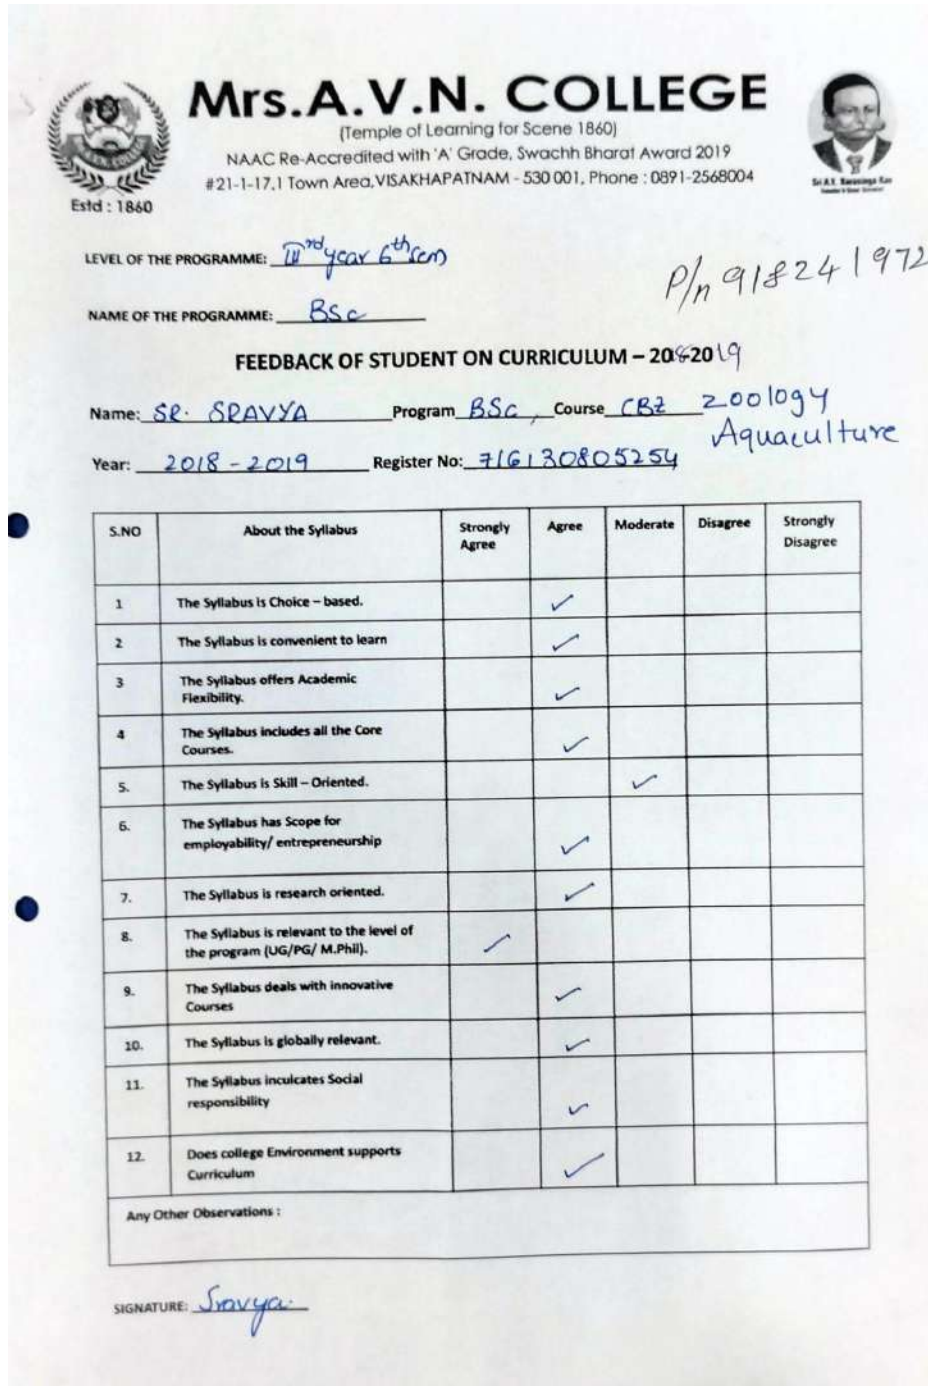 Mrs.A.V.N. COLLEGE
(Temple of Learning for Scene 1860)
NAAC Re-Accredited with 'A' Grade, Swachh Bharat Award 2019
#21-1-17,1 Town Area,VISAKHAPATNAM - 530 001, Phone : 0891-2568004
Estd : 1860
LEVEL OF THE PROGRAMME: III rd year 6th sem
P/n 918241972
NAME OF THE PROGRAMME: BSc
FEEDBACK OF STUDENT ON CURRICULUM – 2018-2019
Name: SR. SRAVYA Program BSc, Course CBZ Zoology
Aquaculture
Year: 2018-2019 Register No: 716130805254
S.NO About the Syllabus Strongly Agree Agree Moderate Disagree Strongly Disagree
1 The Syllabus is Choice – based. ✓
2 The Syllabus is convenient to learn ✓
3 The Syllabus offers Academic
Flexibility. ✓
4 The Syllabus includes all the Core
Courses. ✓
5. The Syllabus is Skill – Oriented. ✓
6. The Syllabus has Scope for
employability/ entrepreneurship ✓
7. The Syllabus is research oriented. ✓
8. The Syllabus is relevant to the level of
the program (UG/PG/ M.Phil). ✓
9. The Syllabus deals with innovative
Courses ✓
10. The Syllabus is globally relevant. ✓
11. The Syllabus inculcates Social
responsibility ✓
12. Does college Environment supports
Curriculum ✓
Any Other Observations :
SIGNATURE: Sravya.